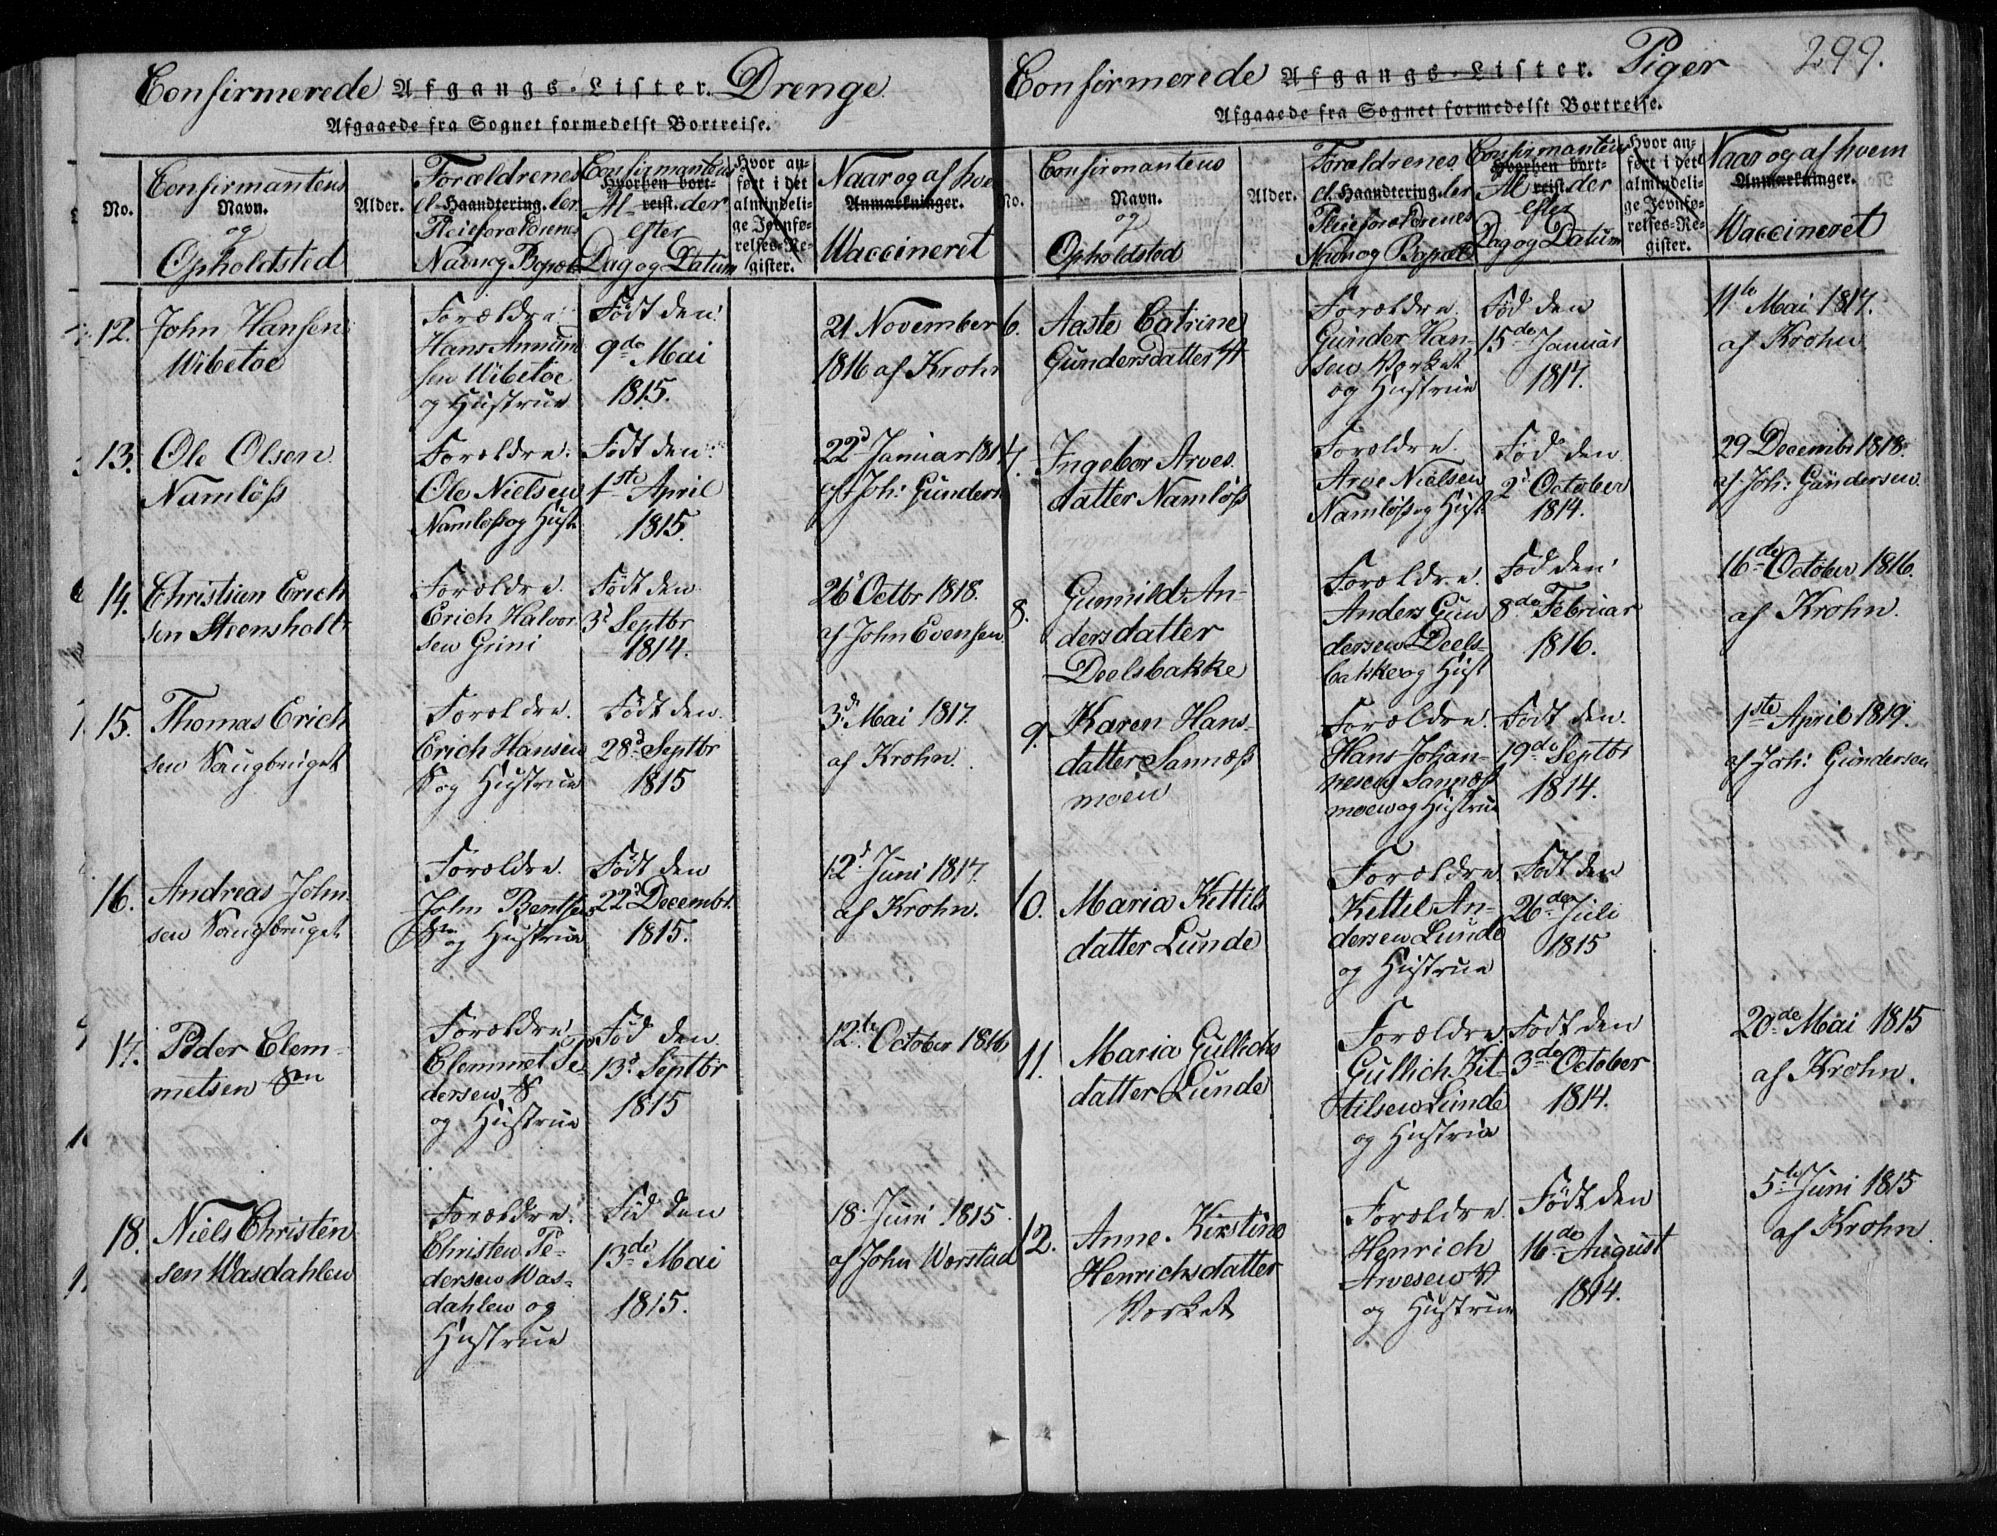 Confirmerede Afgangs-Lister. Drenge.
Afgaaede fra Sognet formedelst Bortreise.
No.
Confirmantens
Navn.
og
Opholdsted
Alder.
Forældrenes
el. Haandtering. ler
Pleieforældrenes
Navn og Bopæl
Confirmantens
Hvorhen bort-
Al- reist. der
efter
Dag og Datum
Hvor an-
ført i det
almindeli-
ge Jevnfø-
relses-Re-
gister.
Naar og af hvem
Anmærkninger.
Vaccineret
12. John Hansen
Wibetoe
Forældre.
Hans Amund
sen Wibetoe
og Hustrue
Født den
9de Mai
1815.
21 November
1816 af Krohn
13. Ole Olsen
Namløss
Forældre.
Ole Nielsen
Namløss og Hust
Født den
1ste April
1815.
22d Januar 181
af Joh: Gunders
14. Christian Erich
sen Steensholt
Forældre.
Erich Halvor
sen Grini
Født den
3d Septbr
1814.
26d Octbr 1818.
af John Evensen
15. Thomas Erich
sen Saugbruget
Forældre.
Erich Hansen
S og Hustrue
Født den
28d Septbr
1815
3d Mai 1817.
af Krohn.
16. Andreas John
sen Saugbruget
Forældre.
John Bentsen
og Hustrue
Født den
22d Decembr.
1815.
12d Juni 1817.
af Krohn.
17. Peder Clem-
metsen
Forældre
Clemmet Pe-
dersen S
og Hustrue
Fød den
13d Septbr
1815
12te October 1816
18. Niels Christen
sen Wasdahlen
Forældre.
Christen Pe-
dersen Was-
dahlen og
Hustrue
Fød den
13de Mai
1815.
18. Juni 1815.
af John Worstad
Confirmerede Afgangs-Lister. Piger
299.
Afgaaede fra Sognet formedelst Bortreise.
No.
Confirmantens
Navn.
og
Opholdsted
Alder.
Forældrenes
el. Haandtering. ler
Pleieforældrenes
Navn og Bopæl
Confirmantens
Hvorhen bort-
Al- reist. der
efter
Dag og Datum
Hvor an-
ført i det
almindeli-
ge Jevnfø-
relses-Re-
gister.
Naar og af hvem
Anmærkninger.
Vaccineret
6. Aaste Catrine
Gundersdatter
Forældre.
Gunder Han-
sen Værket
og Hustrue
Fød den
15de Januar
1817.
11te Mai 1817.
af Krohn
7. Ingebor Arves
datter Namløss
Forældre
Arve Nielsen
Namløss og Hust
Fød den
2d October
1814.
29 Decembr 1818.
af Joh: Gundersen
8. Gunnild An-
dersdatter
Deelsbakke
Forældre.
Anders Gun
dersen Deels-
bakke og Hust
Fød den
8de Februar
1816.
16de October 1816.
af Krohn.
9. Karen Hans-
datter Sannæss
moen
Forældre.
Hans Johan-
nesen Sannæss
moen og Hustrue
Født den.
19de Septbr
1814.
1ste April 1819.
af Joh: Gundersen
10. Maria Kettils
datter Lunde
Forældre.
Kettel An-
dersen Lunde
og Hustrue
Født den
26de Juli
1815
11. Maria Gullichs
datter Lunde
Forældre.
Gullich Kit-
tilsen Lunde
og Hustrue
Født den
3de October
1814.
20de Mai 1815
af Krohn.
12. Anne Kirstine
Henrichsdatter
Værket
Forældre.
Henrich
Arvesen
og Hustrue
Født den
16de August
1814.
5te Juni 1815
af Krohn.